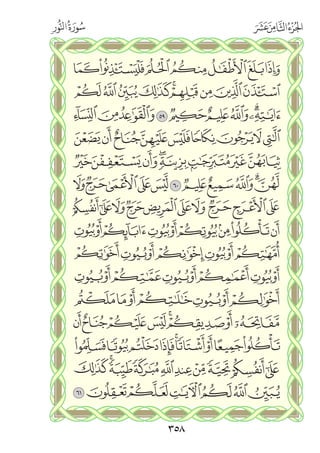 الجزء الثامن عشر سورة النور
وَإِذَا بَلَغَ ٱلْأَطْفَٰلُ مِنكُمُ ٱلْحُلُمَ فَلْيَسْتَـْٔذِنُوا۟ كَمَا
ٱسْتَـْٔذَنَ ٱلَّذِينَ مِن قَبْلِهِمْ ۚ كَذَٰلِكَ يُبَيِّنُ ٱللَّهُ لَكُمْ
ءَايَٰتِهِۦ ۗ وَٱللَّهُ عَلِيمٌ حَكِيمٌ ٥٩ وَٱلْقَوَٰعِدُ مِنَ ٱلنِّسَآءِ
ٱلَّٰتِى لَا يَرْجُونَ نِكَاحًا فَلَيْسَ عَلَيْهِنَّ جُنَاحٌ أَن يَضَعْنَ
ثِيَابَهُنَّ غَيْرَ مُتَبَرِّجَٰتٍۭ بِزِينَةٍ ۖ وَأَن يَسْتَعْفِفْنَ خَيْرٌ
لَّهُنَّ ۗ وَٱللَّهُ سَمِيعٌ عَلِيمٌ ٦٠ لَّيْسَ عَلَى ٱلْأَعْمَىٰ حَرَجٌ وَلَا
عَلَى ٱلْأَعْرَجِ حَرَجٌ وَلَا عَلَى ٱلْمَرِيضِ حَرَجٌ وَلَا عَلَىٰٓ أَنفُسِكُمْ
أَن تَأْكُلُوا۟ مِنۢ بُيُوتِكُمْ أَوْ بُيُوتِ ءَابَآئِكُمْ أَوْ بُيُوتِ
أُمَّهَٰتِكُمْ أَوْ بُيُوتِ إِخْوَٰنِكُمْ أَوْ بُيُوتِ أَخَوَٰتِكُمْ
أَوْ بُيُوتِ أَعْمَٰمِكُمْ أَوْ بُيُوتِ عَمَّٰتِكُمْ أَوْ بُيُوتِ
أَخْوَٰلِكُمْ أَوْ بُيُوتِ خَٰلَٰتِكُمْ أَوْ مَا مَلَكْتُم
مَّفَاتِحَهُۥٓ أَوْ صَدِيقِكُمْ ۚ لَيْسَ عَلَيْكُمْ جُنَاحٌ أَن
تَأْكُلُوا۟ جَمِيعًا أَوْ أَشْتَاتًا ۚ فَإِذَا دَخَلْتُم بُيُوتًا فَسَلِّمُوا۟
عَلَىٰٓ أَنفُسِكُمْ تَحِيَّةً مِّنْ عِندِ ٱللَّهِ مُبَٰرَكَةً طَيِّبَةً ۚ كَذَٰلِكَ
يُبَيِّنُ ٱللَّهُ لَكُمُ ٱلْءَايَٰتِ لَعَلَّكُمْ تَعْقِلُونَ ٦١
٣٥٨